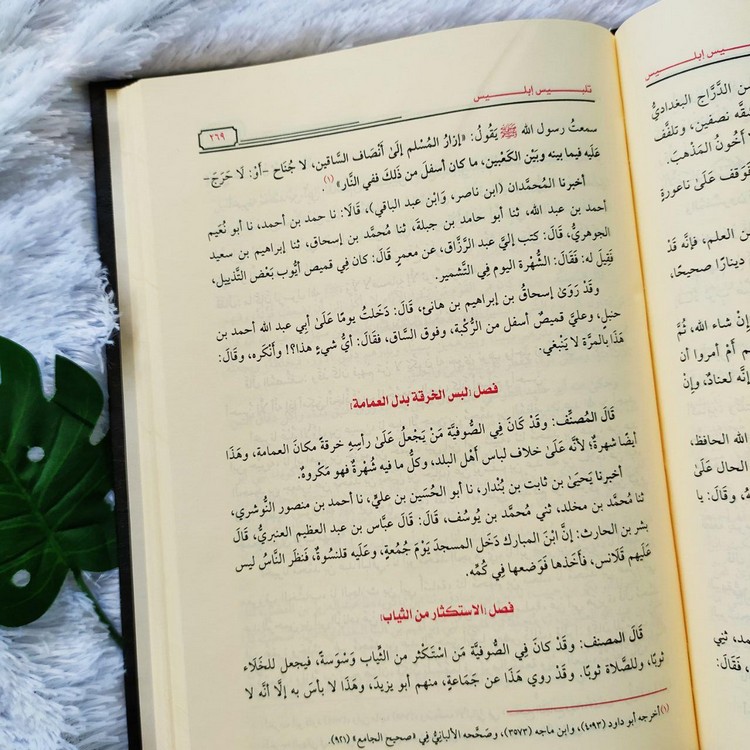 تلبيس إبليس
٢٦٩
سمعتُ رسول الله ﷺ يَقُولُ: «إزَارُ المُسْلم إلَىٰ أنْصَاف الساقين، لا جُناح -أوْ: لَا حَرَجَ-
عَلَيه فيما بينه وبَيْن الكَعْبين، ما كان أسفلَ من ذَلكَ ففي النَّار» (١).
أخبرنا المُحمَّدان (ابن ناصر، وَابْن عبد الباقي)، قَالَا: نا حمد بن أحمد، نا أبو نُعَيم
أحمد بن عبد الله، ثنا أبو حامد بن جبلة، ثنا مُحمَّد بن إسحاق، ثنا إبراهيم بن سعيد
الجوهريُّ، قَالَ: كتب إليَّ عبد الرَّزَّاق، عن معمرٍ قَالَ: كان فِي قميص أيُّوب بَعْض التَّذييل،
فَقِيلَ له: فَقَالَ: الشُّهْرة اليوم فِي التَّشمير.
وقَدْ رَوَىٰ إسحاقُ بن إبراهيم بن هانئ، قَالَ: دَخَلتُ يومًا عَلَىٰ أبي عبد الله أحمد بن
حنبلٍ، وعليَّ قميصٌ أسفل من الرُّكْبة، وفوق السَّاق، فقَالَ: أيُّ شيءٍ هذا؟! وأنْكَره، وقَالَ:
هَذَا بالمرَّة لا يَنْبغي.
فصل [لبس الخرقة بدل العمامة]
قَالَ المُصنِّف: وقَدْ كَانَ فِي الصُّوفيَّة مَنْ يَجْعلُ عَلَىٰ رأسِهِ خرقةً مكانَ العمامة، وهَذَا
أيضًا شهرةٌ؛ لأنَّه عَلَىٰ خلاف لباس أهْل البلد، وكلُّ ما فيه شُهْرةٌ فهو مَكْروهٌ.
أخبرنا يَحيَىٰ بن ثابت بن بُنْدار، نا أبو الحُسَين بن عليٍّ، نا أحمد بن منصور النُّوشري،
ثنا مُحمَّد بن مخلد، ثني مُحمَّد بن يُوسُف، قَالَ: قَالَ عبَّاس بن عبد العظيم العنبريُّ، قَالَ
بشر بن الحارث: إنَّ ابْنَ المبارك دَخَل المسجدَ يَوْمَ جُمُعةٍ، وعَلَيه قلنسوةٌ، فَنظَر النَّاسُ ليس
عَلَيهم قَلَانس، فَأَخَذها فَوَضعها فِي كُمِّه.
فصل [الاستكثار من الثياب]
قَالَ المصنف: وقَدْ كانَ فِي الصُّوفيَّة مَن اسْتَكْثر من الثِّياب وَسْوَسةً، فيجعل للخَلَاء
ثوبًا، وللصَّلاة ثوبًا. وقَدْ روي هَذَا عن جَمَاعةٍ، منهم أبو يزيدَ، وهَذَا لا بأسَ به إلَّا أنَّه لا
(١) أخرجه أبو داود (٤٠٩٣)، وابن ماجه (٣٥٧٣)، وصَحَّحه الألبَانِيُّ في «صحيح الجامع» (٩٢١).
تلبيس إبليس
ن الدَّرَّاج البغداديُّ
شقَّه نصفين، وتلقَّف
أخُونُ المَذْهبَ.
فَوَقف عَلَىٰ ناعورةٍ
ن العلم، فإنَّه قَدْ
دينارًا صحيحًا،
إنْ شاء الله، ثُمَّ
م أمْ أمروا أن
إنَّه لعنادٌ، وإنْ
الله الحافظ،
الحال عَلَىٰ
وقَالَ: يا
مد، ثني
فَقَالَ: